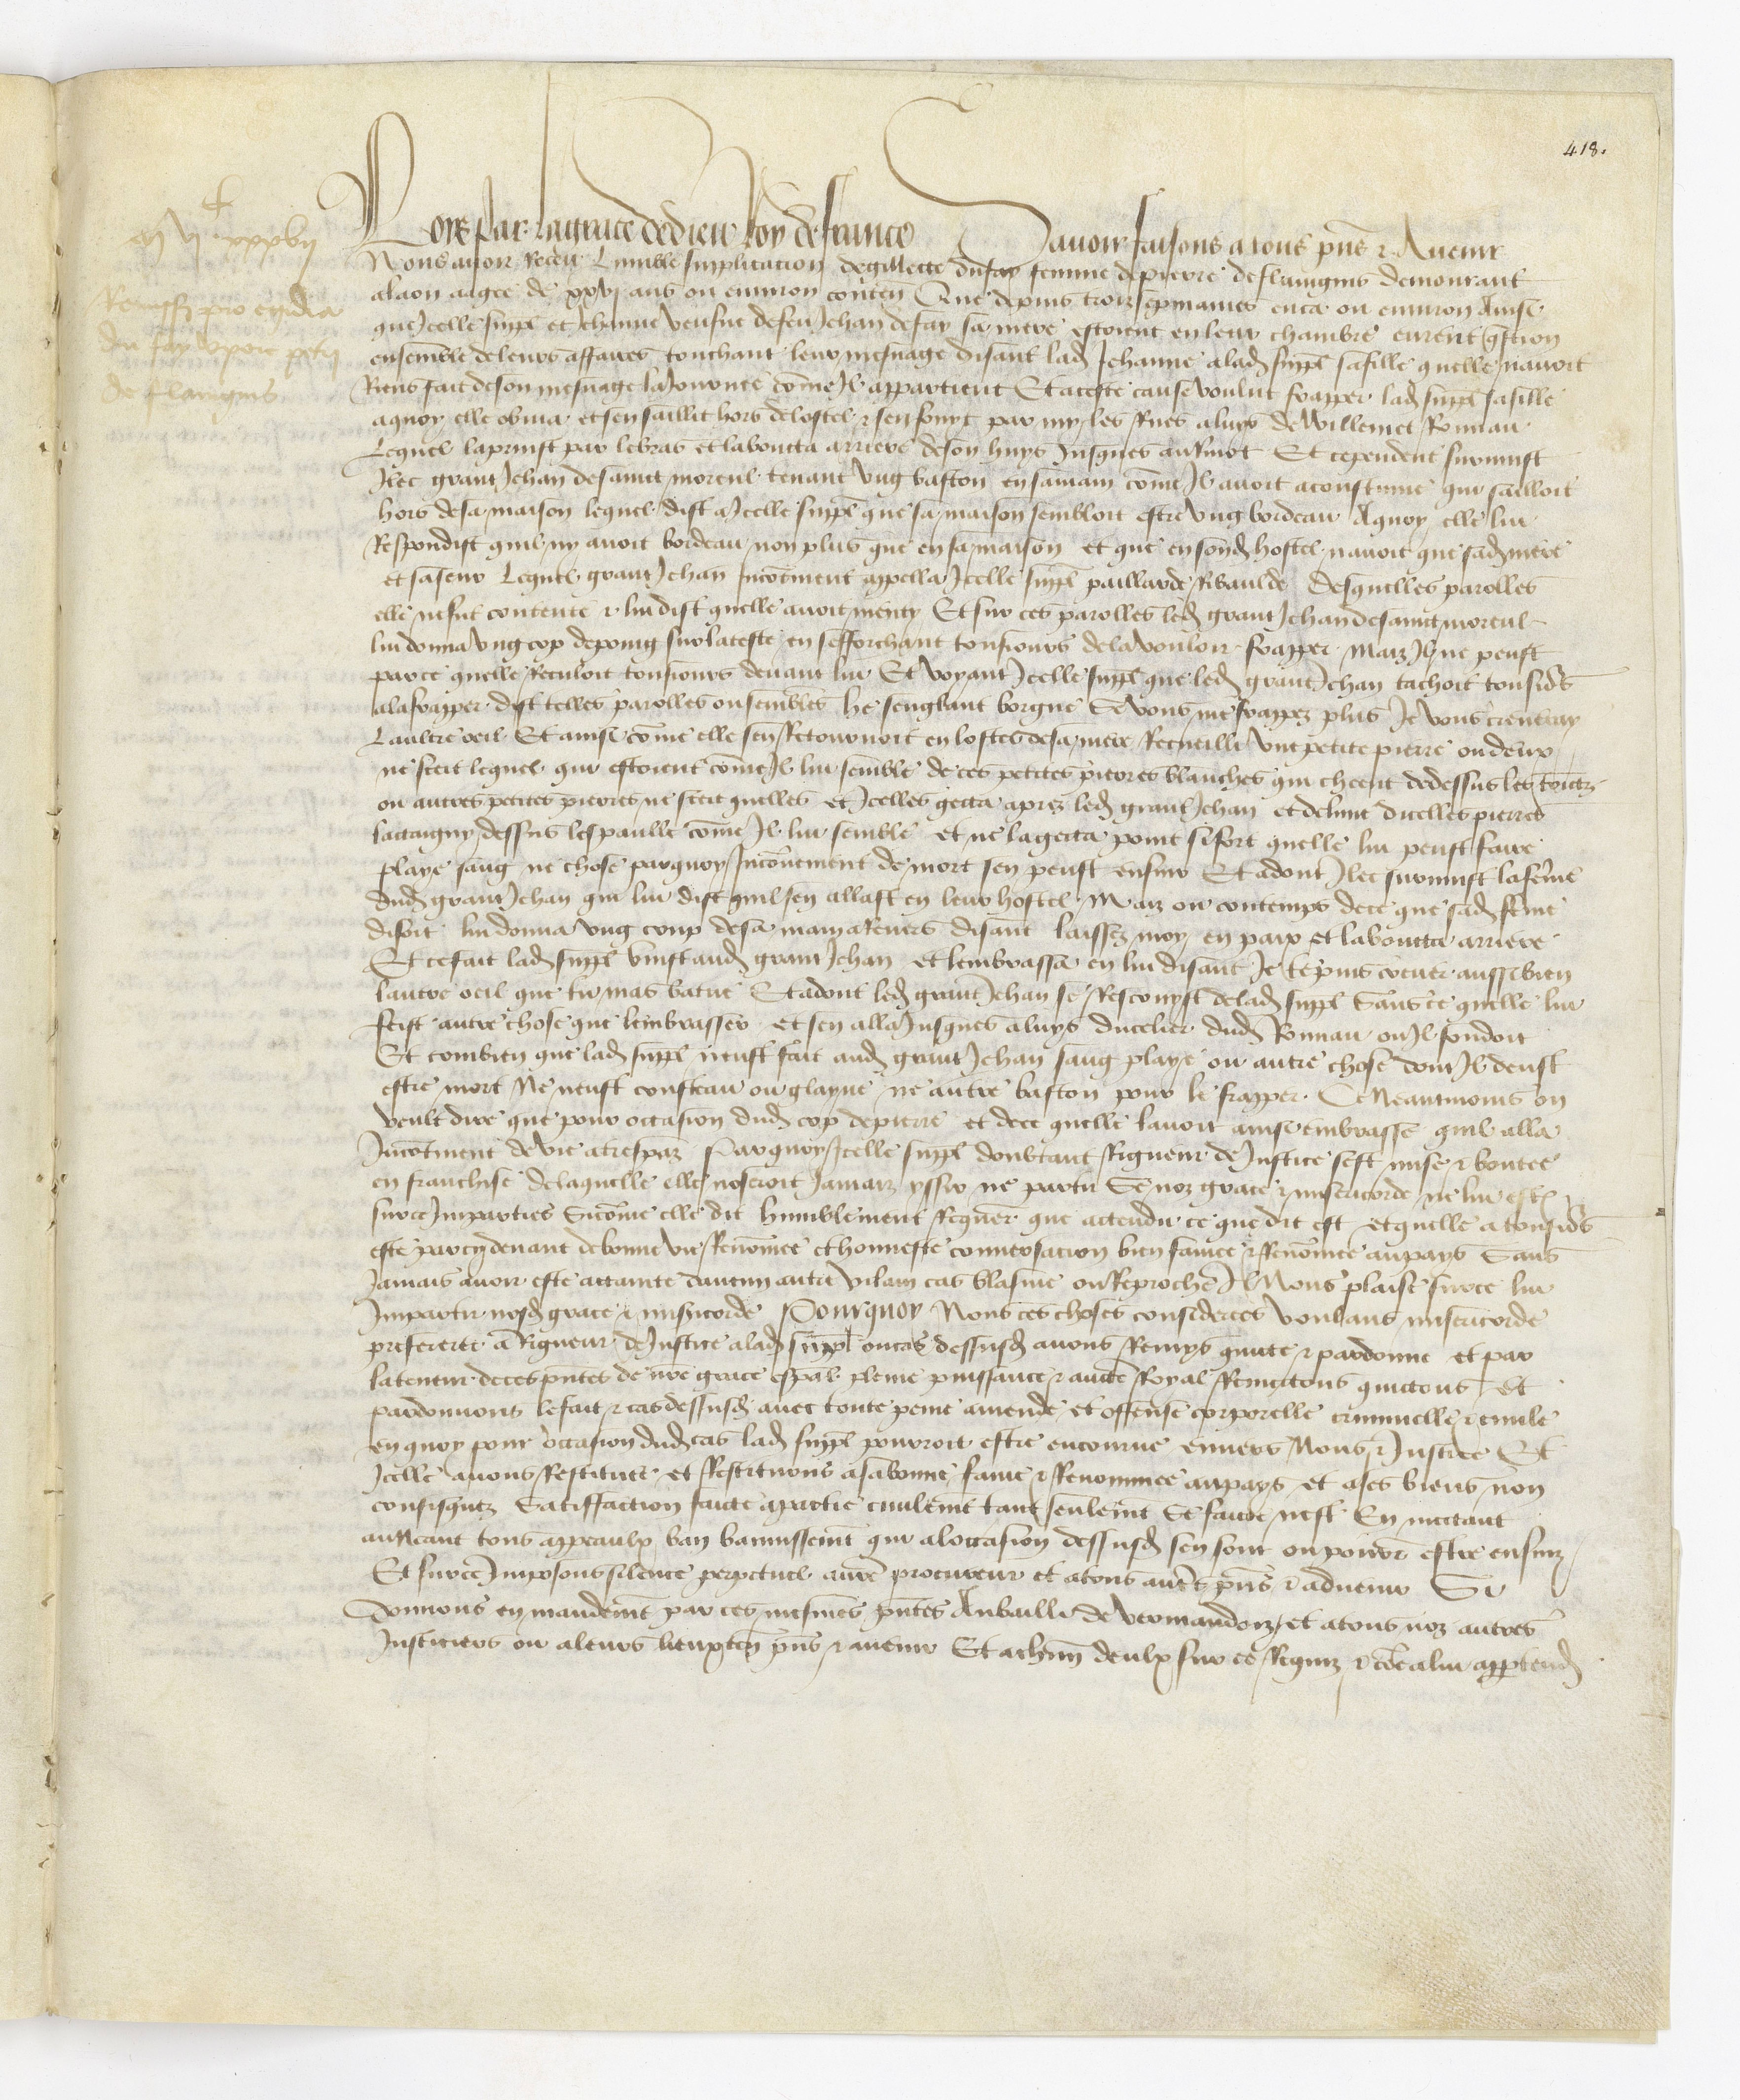 418.
iiijc vj xxxvij
Remissio pro egidia
du fay uxore petri
de flavignis
Loys par la grace de dieu Roy de france Savoir faisons a tous pñs & Avenir
Nous avoir Receu Lumble supplicacion de gillette du fay femme de pierre de flavignis demourant
a laon aagee de xxvj ans ou environ conteñ Que depuis trois sepmaines enca ou environ Ainsi
que Icelle suppl et Jehanne veufue de feu Jehan de fay sa mere estoient en leur chambre eurent q̃stion
ensemble de leurs affaires touchant leur mesnage disant lad Jehanne a lad suppl sa fille quelle navoit
Riens fait de son mesnage la Journee cõme Il appartient Et a ceste cause voulut frapper lad suppl sa fille
a quoy elle obvia et sen saillit hors de lostel & sen fouyt par my les Rues a luys de Willemet Rouuau
Lequel la prinst par le bras et la boutta arriere de son huys Jusques au Ruiot Et cependent survinst
Ilec grant Jehan de sainct moreul tenant ung baston en sa main cõme Il avoit acoustume qui sailloit
hors de sa maison lequel dist a Icelle suppl que sa maison sembloit estre ung bordeau A quoy elle lui
Respondist quil ny avoit bordeau non plus que en sa maison et que en sond hostel navoit que sad mere
et sa seur Lequel grant Jehan Incõtinent appella Icelle suppl paillarde Ribaulde Desquelles parolles
elle ne fut contente & lui dist quelle avoit menty Et sur ces parolles led grant Jehan de sainct moreul
lui donna ung cop de poing sur la teste en sefforchant tousiours de la vouloir frapper Maiz Il ne peust
parce quelle Reculoit tousiours devant lui Et voyant Icelle suppl que led grant Jehan tachoit tousiõrs
a la frapper dist telles parolles ou semblẽs he senglant borgne Se vous me frappez plus Je vous creveray
Laultre oeil Et ainsi cõme elle sen Retournoit en lostel de sa mere Recueilli une petite pierre ou deux
ne sceit lequel qui estoient cõme Il lui semble de ces petites pierres blanches qui cheent de dessus les toictz
ou autres petites pierres ne sceit quelles et Icelles gecta apres led grant Jehan et de lune dicelles pierres
lactaigny dessus lespaulle cõme Il lui semble et ne la gecta point si fort quelle lui peust faire
playe sang ne chose parquoy Inconvenient de mort sen peust ensuir Et adont Ilec survinst la fem̃e
dud grant Jehan qui lui dist quil sen allast en leur hostel Maiz ou contemps de ce que sad fem̃e
disoit lui donna ung coup de sa main a Revers disant laissez moy en paix et la boutta arriere
Et ce fait lad suppl vinst aud grant Jehan et lembrassa en lui disant Je te puis crever aussi bien
lautre oeil que tu mas batue Et adont led grant Jehan se Rescouyst de lad suppl Sans ce quelle lui
feist autre chose que lembrasser et sen alla Jusques a luys du celier dud Rouuau ou Il fondoit
Et combien que lad suppl neust fait aud grant Jehan sang playe ou autre chose dont Il deust
estre mort Ne neust cousteau ou glayve ne autre baston pour le frapper Ce Neantmoins on
veult dire que pour occasion dud cop de pierre et de ce quelle lavoit ainsi embrasse quil alla
Incõtinent de vie a trespaz Parquoy Icelle suppl doubtant Rigueur de Justice sest mise & boutee
en franchise de laquelle elle noseroit Jamaiz yssir ne partir Se noz grace & misericorde ne lui estoient
sur ce Imparties Sicõme elle dit humblement Requer que actendu ce que dit est et quelle a tousiõrs
este par cy devant de bonne vie Renõmee et honneste conversacion bien famee & Renõmee au pays Sans
Jamais avoir este attainte daucun autre vilain cas blasme ou Reproche Il Nous plaise sur ce lui
Impartir nosd grace & misericorde Pourquoy Nous ces choses considerees voulans misericorde
preferer a Rigueur de Justice a lad suppl ou cas dessusd avons Remys quicte & pardonne et par
la teneur de ces pñtes de ñre grace espal pleine puissance & aucte Royal Remectons quictons Et
pardonnons le fait & cas dessusd avec toute peine amende et offense corporelle criminelle & civile
en quoy pour occasion dud cas lad suppl pourroit estre encourue envers Nous & Justice Et
Icelle avons Restituee et Restituons a sa bonne fame & Renommee au pays et a ses biens non
confisquez Satisfaction faicte a partie civilem̃t tant seulem̃t Se faicte nest En mectant
au Neant tous appeaulx ban bannissem̃t qui a loccasion dessusd sen sont ou pourr̃ estre ensuiz
Et sur ce Imposons silence perpetuel a ñre procureur et a tous autr̃s pñs & advenir Si
Donnons en mandem̃t par ces mesmes pñtes Au bailli de vermandoiz et a tous noz autres
Justiciers ou a leurs lieuxteñ pñs & avenir Et a chũn deulx sur ce Requiz & cõe a lui appartendr̃